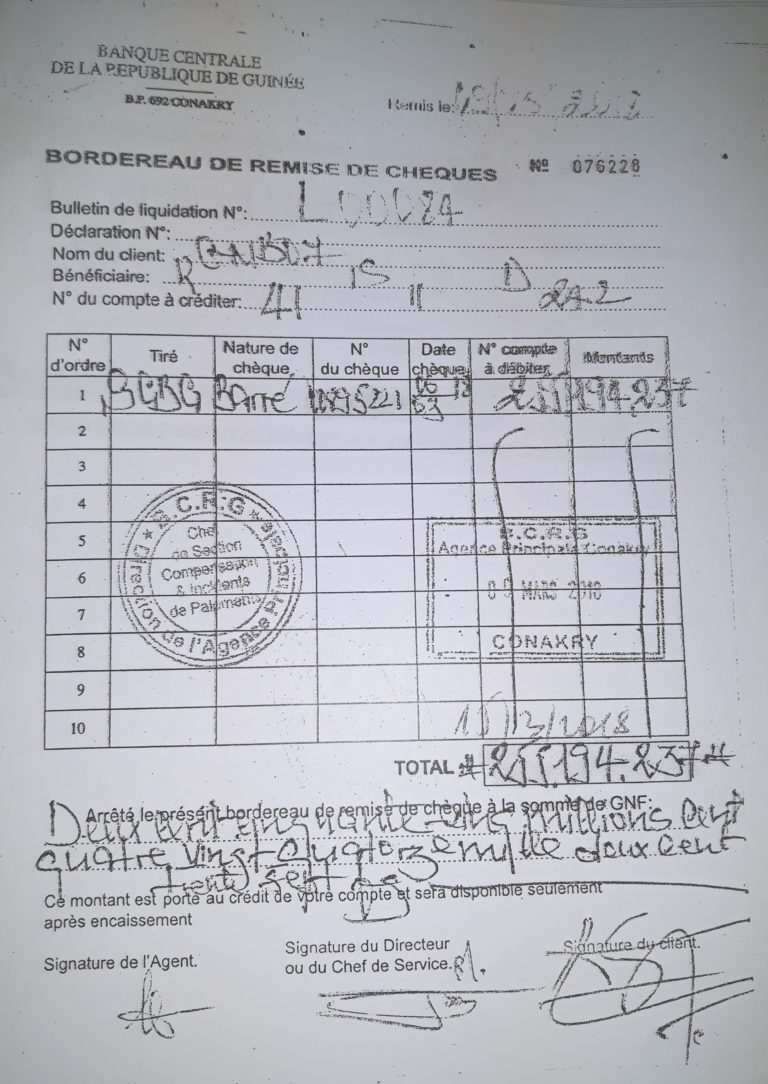 BANQUE CENTRALE
DE LA REPUBLIQUE DE GUINÉE
B.P. 692 CONAKRY
Remis le:
BORDEREAU DE REMISE DE CHEQUES Nº 076228
Bulletin de liquidation N°:
Déclaration N°:
Nom du client:
Bénéficiaire: R IS D
N° du compte à créditer: 41 11 2A2
N° d'ordre Tiré Nature de chèque N° du chèque Date chèque N° compte à débiter Montants
1 Barré 255.194.237
2
3
4
5
6
7
8
9
10
B.C.R.G
Direction de l'Agence Principale
Chef
de Section
Compensation
& Incidents
de Paiements
B.C.R.G
Agence Principale Conakry
MARS
CONAKRY
TOTAL # 255.194.237 #
Arrêté le présent bordereau de remise de chèque à la somme de GNF:
Deux cent cinquante-cinq millions cent
quatre vingt quatorze mille deux cent
trente sept
Ce montant est porté au crédit de votre compte et sera disponible seulement
après encaissement
Signature de l'Agent.
Signature du Directeur
ou du Chef de Service.
Signature du client.